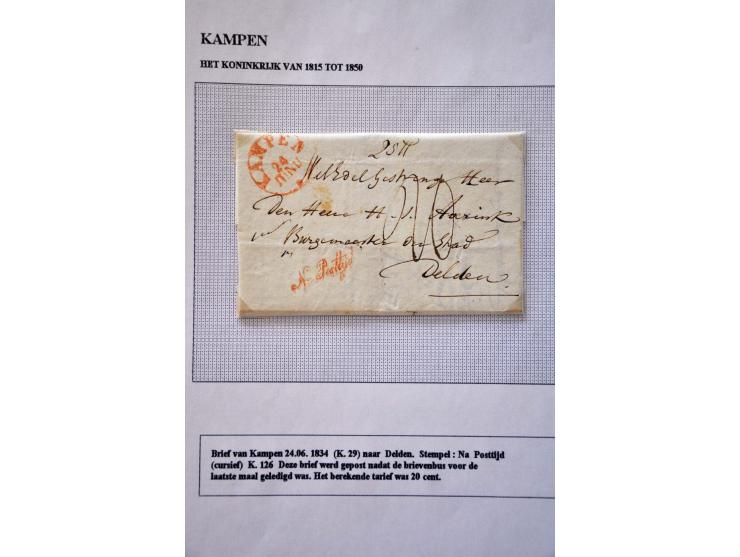 KAMPEN
HET KONINKRIJK VAN 1815 TOT 1850
KAMPEN
24
JUNIJ
Wel Edel Gestreng Heer
Den Heer H. J.
Burgemeester der Stad
Delden.
Na Posttijd
Brief van Kampen 24.06. 1834 (K. 29) naar Delden. Stempel : Na Posttijd
(cursief) K. 126 Deze brief werd gepost nadat de brievenbus voor de
laatste maal geledigd was. Het berekende tarief was 20 cent.